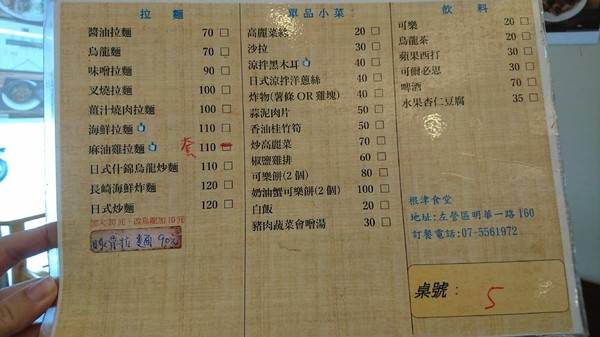 拉麵
醬油拉麵 70 □
烏龍麵 70 □
味噌拉麵 90 □
叉燒拉麵 100 □
薑汁燒肉拉麵 100 □
海鮮拉麵 110 □
麻油雞拉麵 110 □
日式什錦烏龍炒麵 110 □
長崎海鮮炸麵 120 □
日式炒麵 120 □
加大20元、改烏龍加10元
拉麵 90元
單品小菜
高麗菜絲 20 □
沙拉 30 □
涼拌黑木耳 40 □
日式涼拌洋蔥絲 40 □
炸物(薯條 OR 雞塊) 40 □
蒜泥肉片 50 □
香油桂竹筍 50 □
炒高麗菜 70 □
椒鹽雞排 60 □
可樂餅(2個) 80 □
奶油蟹可樂餅(2個) 100 □
白飯 20 □
豬肉蔬菜會噌湯 30 □
飲料
可樂 20 □
烏龍茶 20 □
蘋果西打 30 □
可爾必思 30 □
啤酒 70 □
水果杏仁豆腐 35 □
根津食堂
地址:左營區明華一路160
訂餐電話:07-5561972
桌號: 5